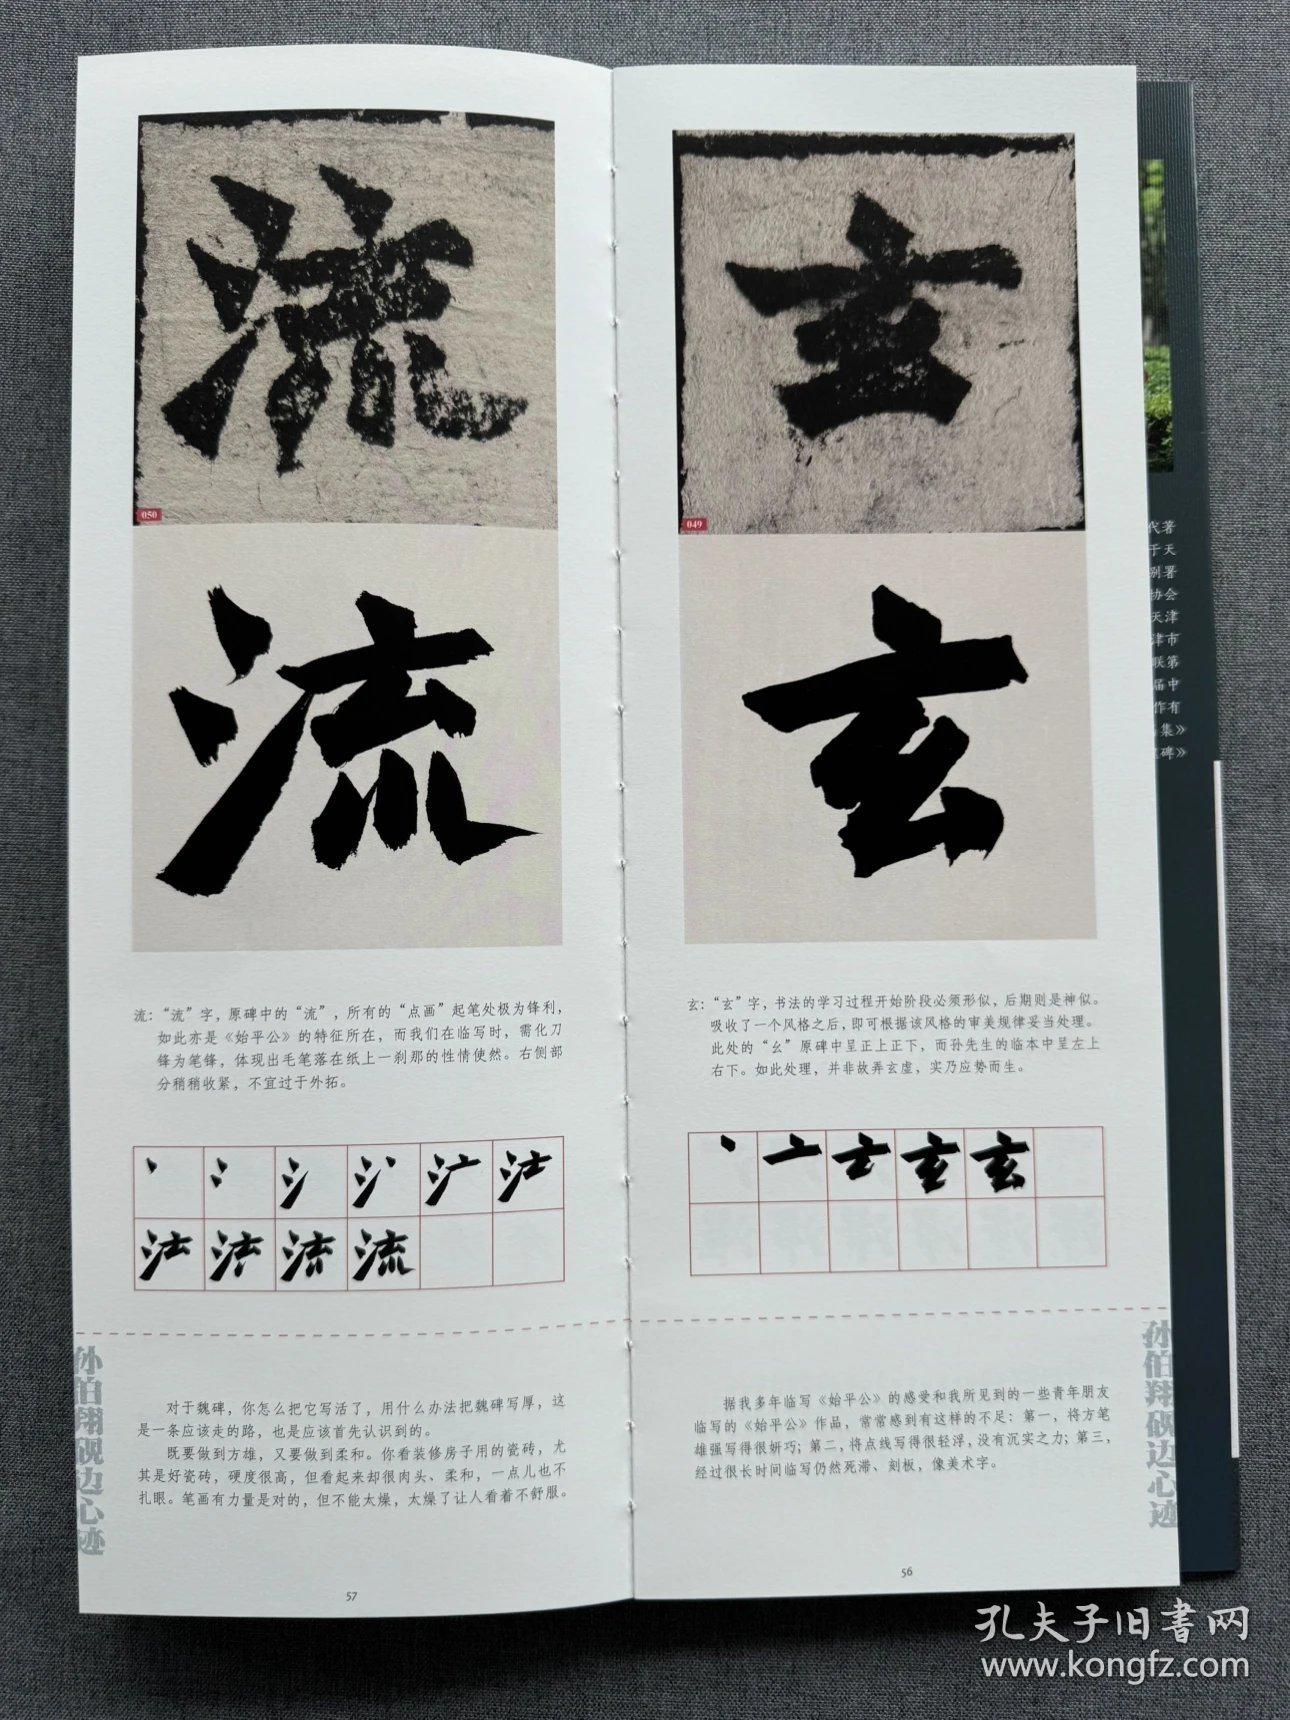 玄
049
玄
玄：“玄”字，书法的学习过程开始阶段必须形似，后期则是神似。
吸收了一个风格之后，即可根据该风格的审美规律妥当处理。
此处的“幺”原碑中呈正上正下，而孙先生的临本中呈左上
右下。如此处理，并非故弄玄虚，实乃应势而生。
玄 玄
据我多年临写《始平公》的感爱和我所见到的一些青年朋友
临写的《始平公》作品，常常感到有这样的不足：第一，将方笔
雄强写得很妍巧；第二，将点线写得很轻浮，没有沉实之力；第三，
经过很长时间临写仍然死滞、刻板，像美术字。
孙伯翔砚边心迹
56
流
050
流
流：“流”字，原碑中的“流”，所有的“点画”起笔处极为锋利，
如此亦是《始平公》的特征所在，而我们在临写时，需化刀
锋为笔锋，体现出毛笔落在纸上一刹那的性情使然。右侧部
分稍稍收紧，不宜过于外拓。
流
对于魏碑，你怎么把它写活了，用什么办法把魏碑写厚，这
是一条应该走的路，也是应该首先认识到的。
既要做到方雄，又要做到柔和。你看装修房子用的瓷砖，尤
其是好瓷砖，硬度很高，但看起来却很肉头、柔和，一点儿也不
扎眼。笔画有力量是对的，但不能太燥，太燥了让人看着不舒服。
孙伯翔砚边心迹
57
代著
于天
别署
协会
天津
津市
联第
届中
作有
集》
碑》
孔夫子旧书网
www.kongfz.com